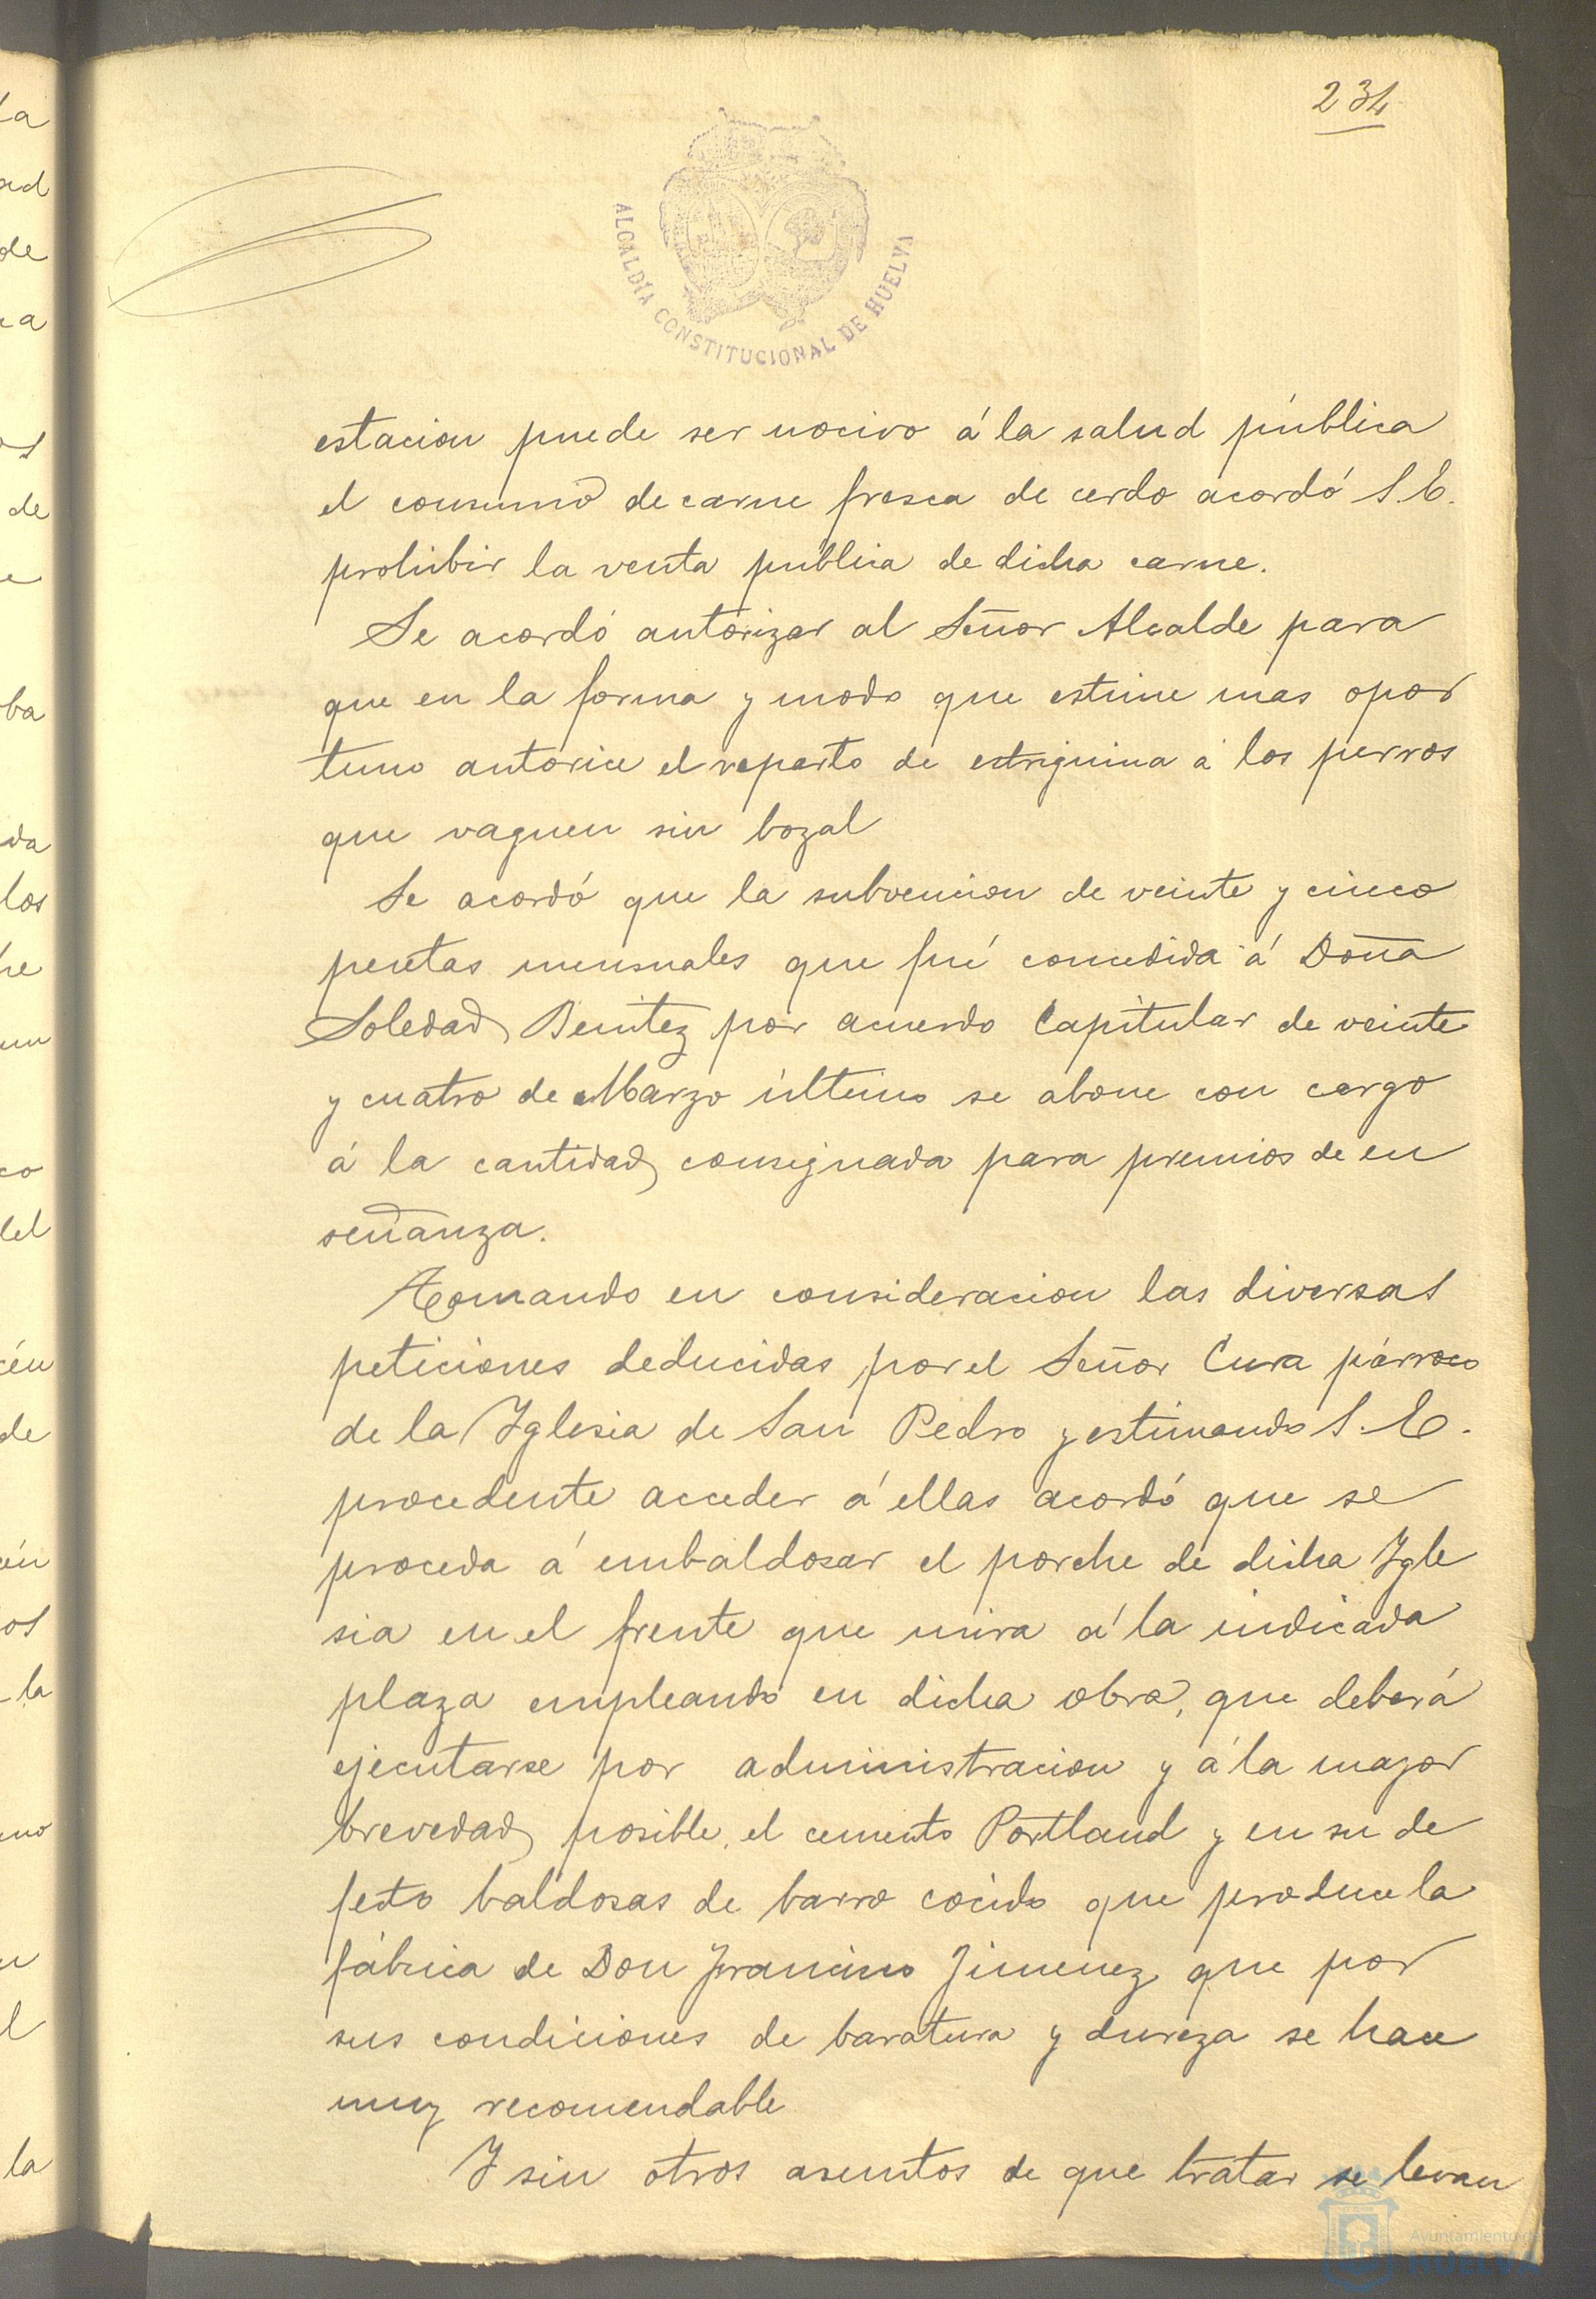 234
ALCALDÍA CONSTITUCIONAL DE HUELVA
estacion puede ser nocivo á la salud pública
el consumo de carne fresca de cerdo acordó S. E.
prohibir la venta publica de dicha carne.
Se acordó autorizar al Señor Alcalde para
que en la forma y modo que estime mas opor
tuno autorice el reparto de estriguina á los perros
que vaguen sin bozal
Se acordó que la subvencion de veinte y cinco
pesetas mensuales que fué concedida á Doña
Soledad Benitez por acuerdo Capitular de veinte
y cuatro de Marzo último se abone con cargo
á la cantidad consignada para premios de en
señanza.
Tomando en consideracion las diversas
peticiones deducidas por el Señor Cura párroco
de la Yglesia de San Pedro y estimando S. E.
procedente acceder á ellas acordó que se
proceda á embaldosar el porche de dicha Ygle
sia en el frente que mira á la indicada
plaza empleando en dicha obra, que deberá
ejecutarse por administracion y á la mayor
brevedad posible, el cemento Portland y en su de
fecto baldosas de barro cocido que produce la
fábrica de Don Francisco Jimenez que por
sus condiciones de baratura y dureza se hace
muy recomendable
Y sin otros asuntos de que tratar se levan
Ayuntamiento de
HUELVA